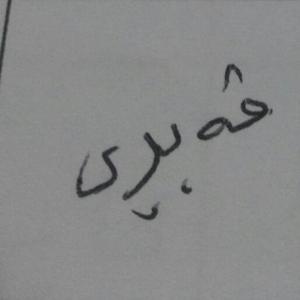 ڤەبڕی